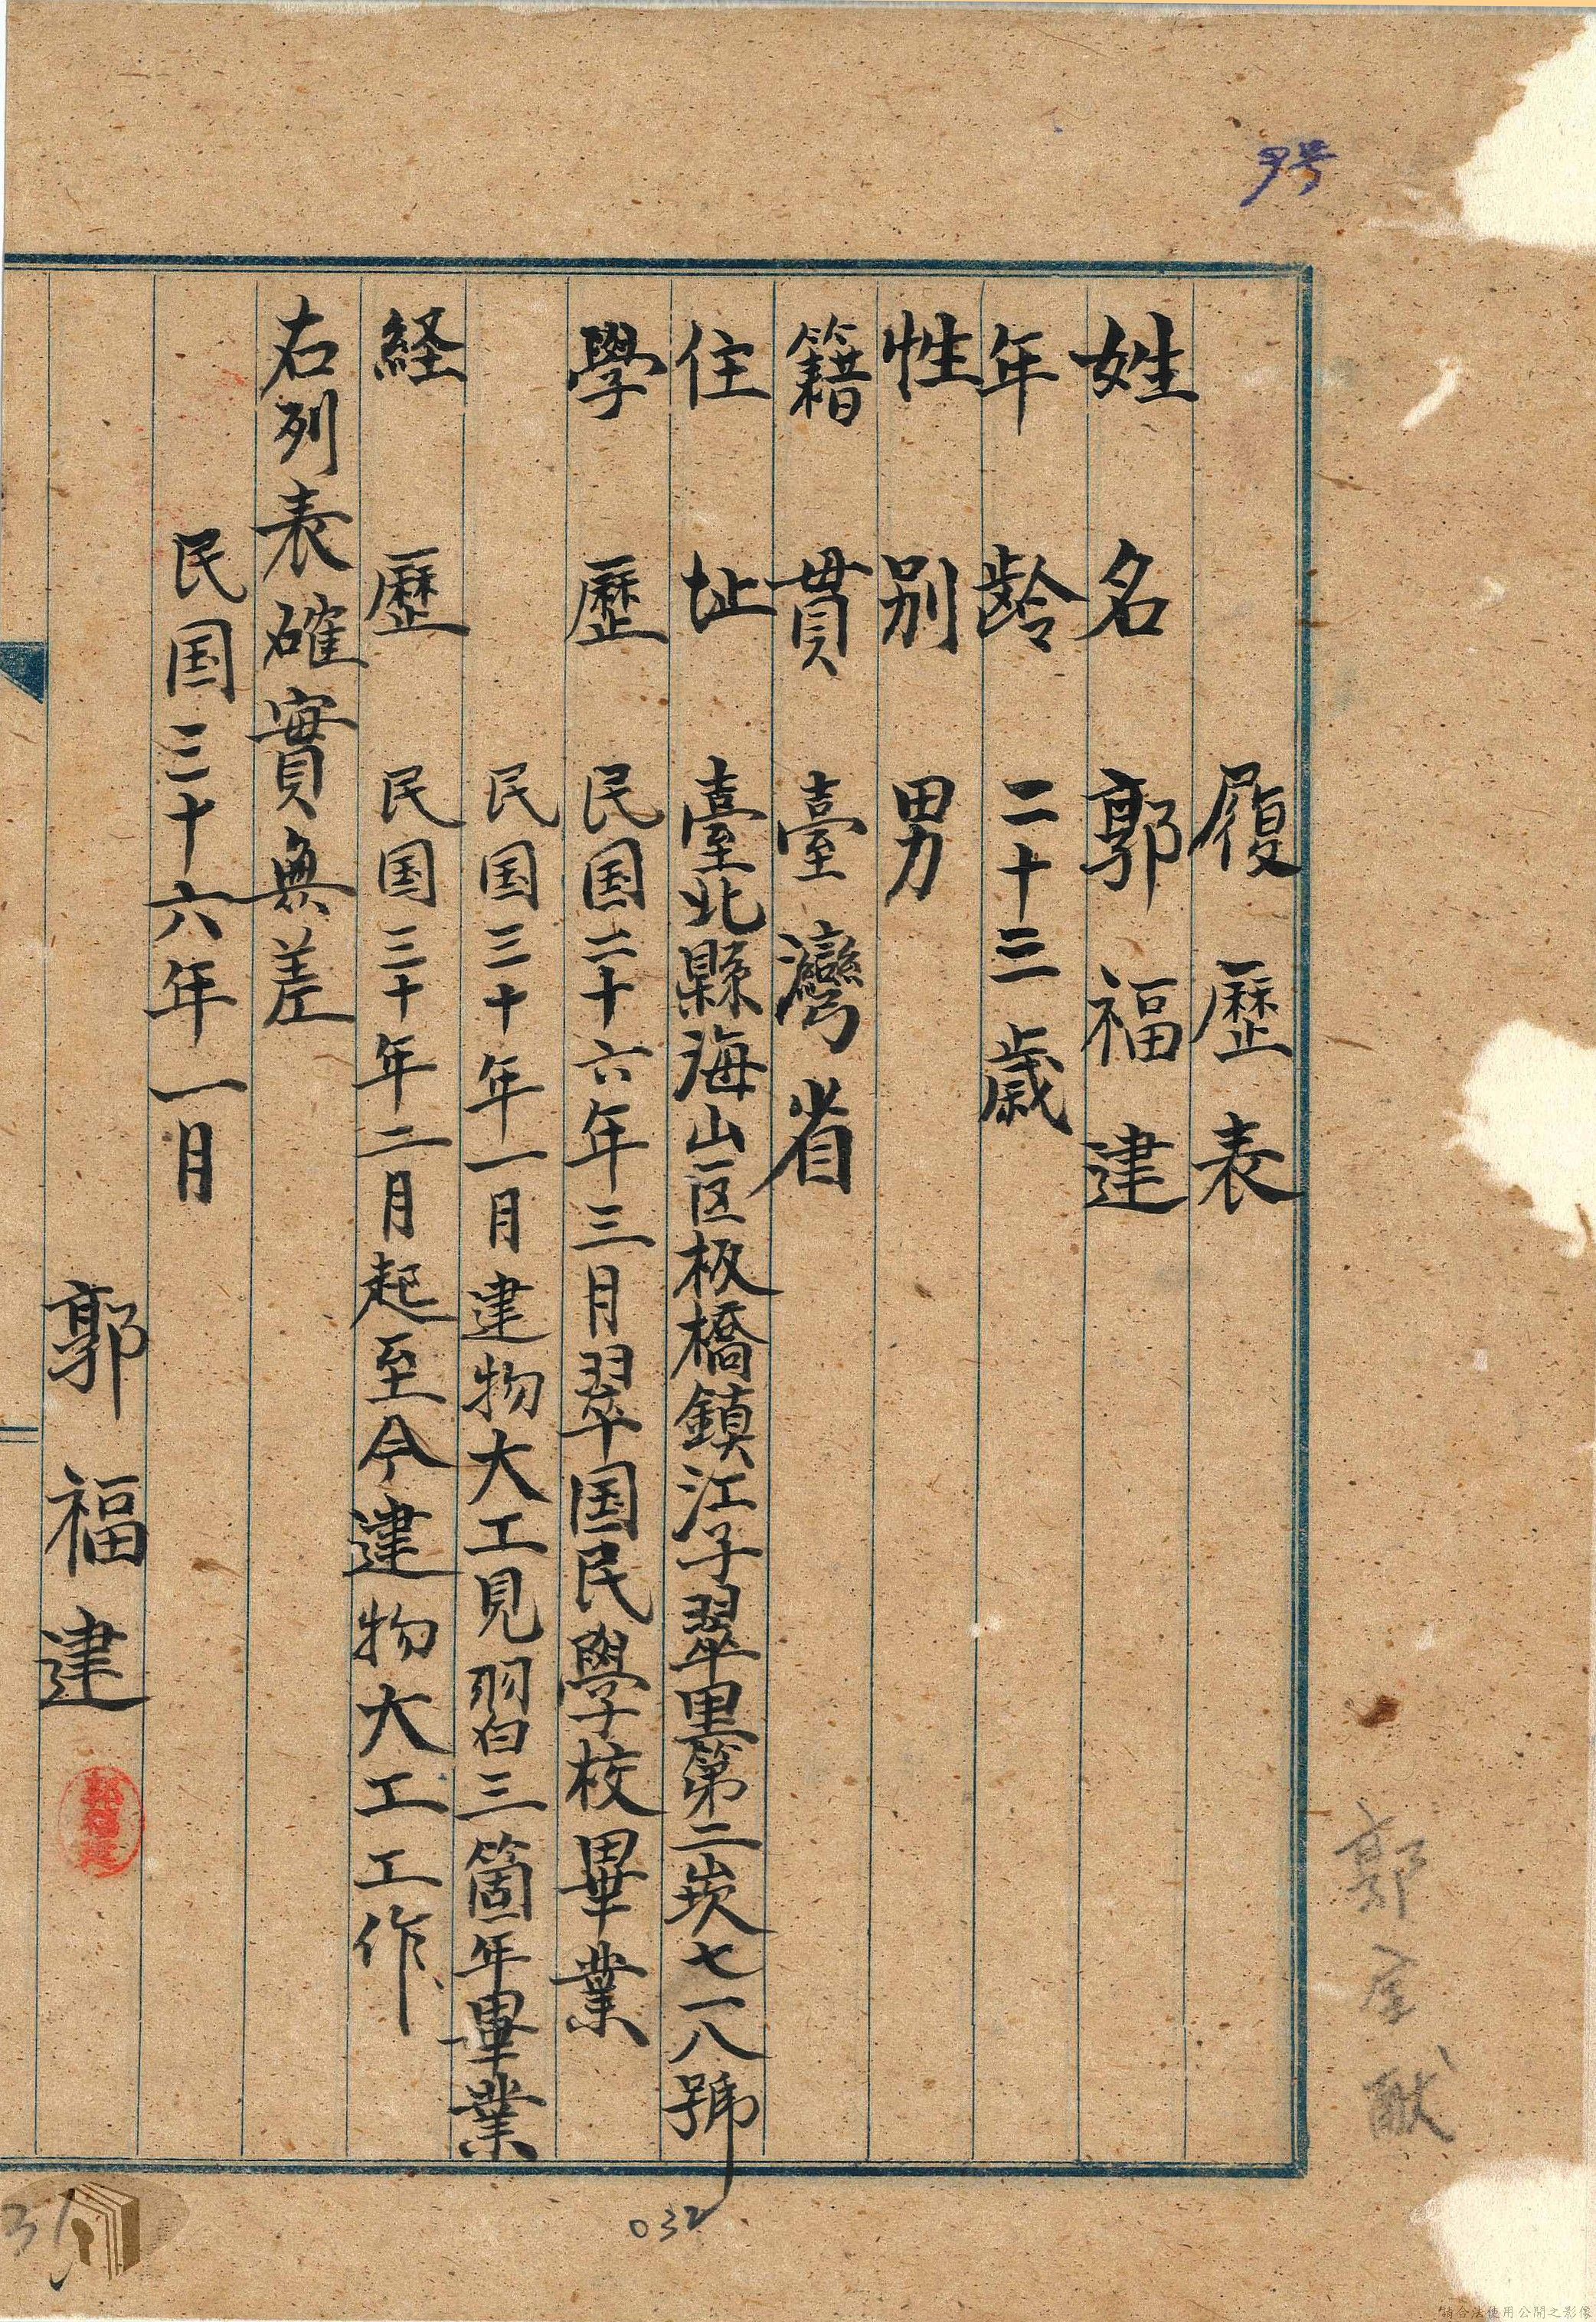 9号
履歷表
姓名 郭福建
年齡 二十三歲
性別 男
籍貫 臺灣省
住址 臺北縣海山区板橋鎮江子翠里第二崁七一八號
學歷 民国二十六年三月翠国民學校畢業
民国三十年一月建物大工見習三箇年畢業
経歷 民国三十年二月起至今建物大工工作
右列表確實無差
民国三十六年一月
郭福建
郭福建
郭金献
032
31
請合法使用公開之影像